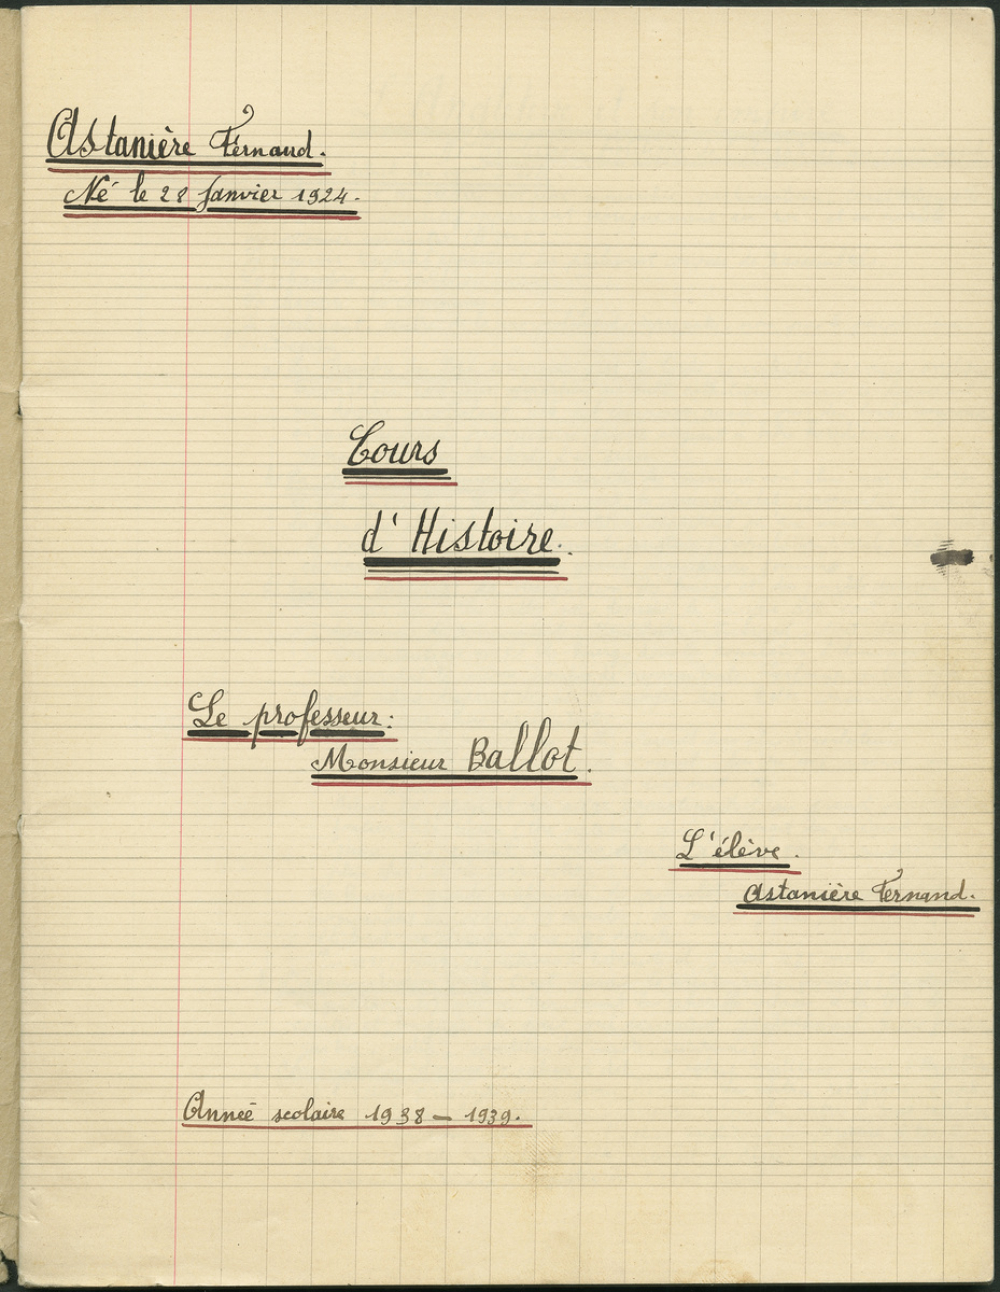 Astanière Fernand.
Né le 28 Janvier 1924.
Cours
d'Histoire.
Le professeur:
Monsieur Ballot.
L'élève.
Astanière Fernand.
Année scolaire 1938 - 1939.